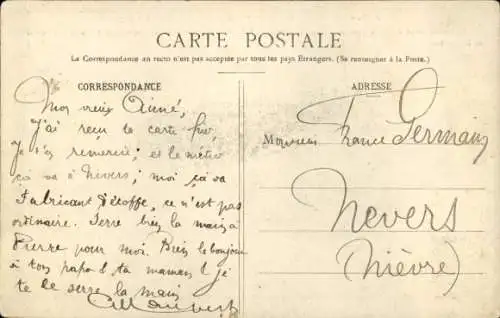 CARTE POSTALE
La Correspondance au recto n'est pas acceptée par tous les pays Étrangers. (Se renseigner à la Poste.)
CORRESPONDANCE
Mon vieux Aimé,
J'ai reçu la carte
je t'en remercie; et le métier
ça va à Nevers; moi, ça va
Fabricant d'étoffe, ce n'est pas
ordinaire. Serre bien la main à
Pierre pour moi. Bien le bonjour
à ton papa & ta maman & je
te serre la main
ADRESSE
Monsieur France Germain
Nevers
(Nièvre)